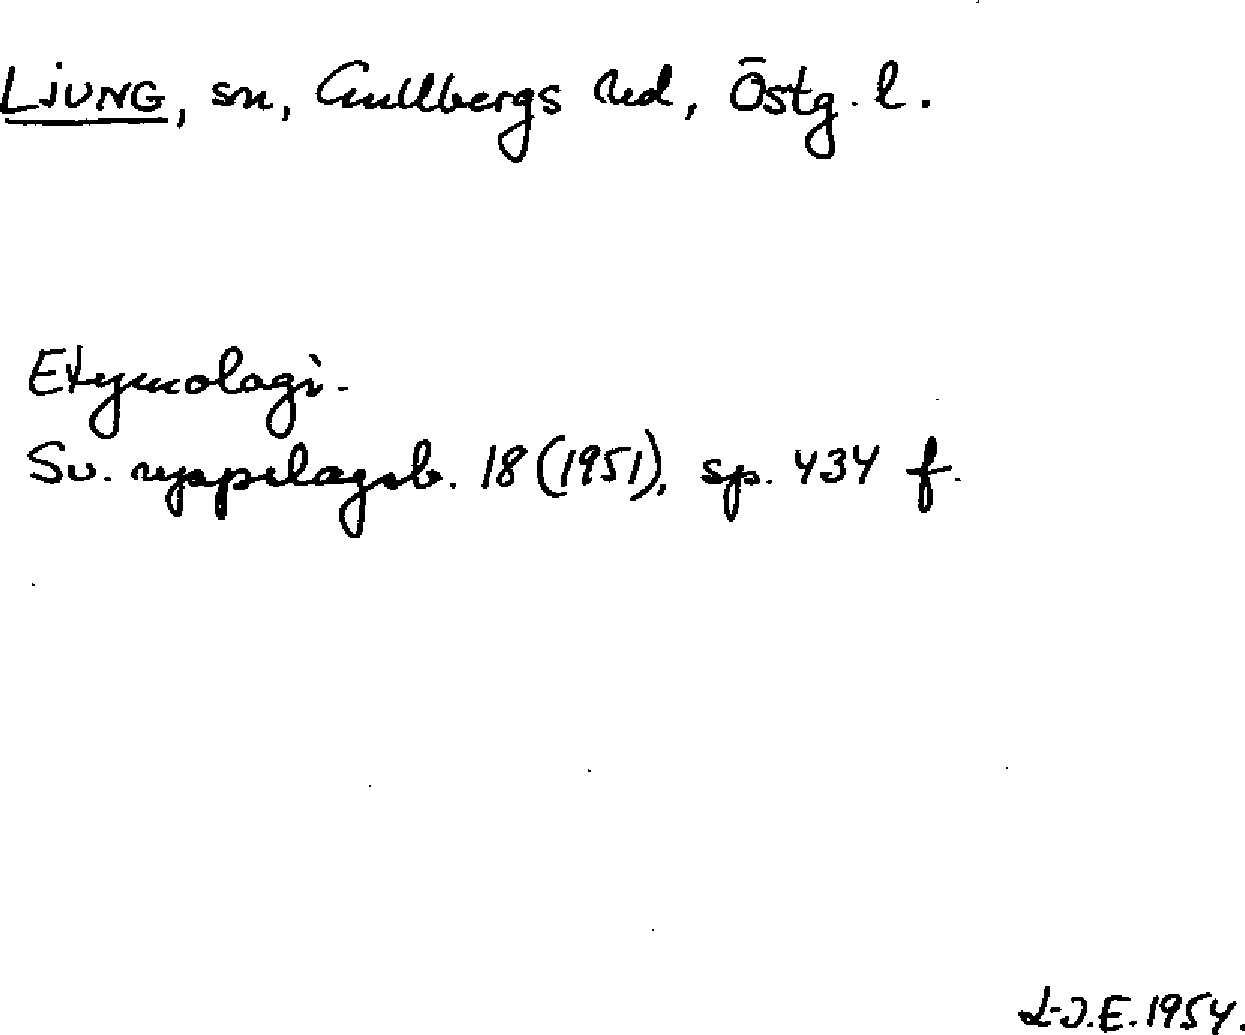 LJUNG, sn, Gullbergs hd, Östg. l.
Etymologi.
Sv. uppslagsb. 18 (1951), sp. 434 f.
L-J.E. 1954.